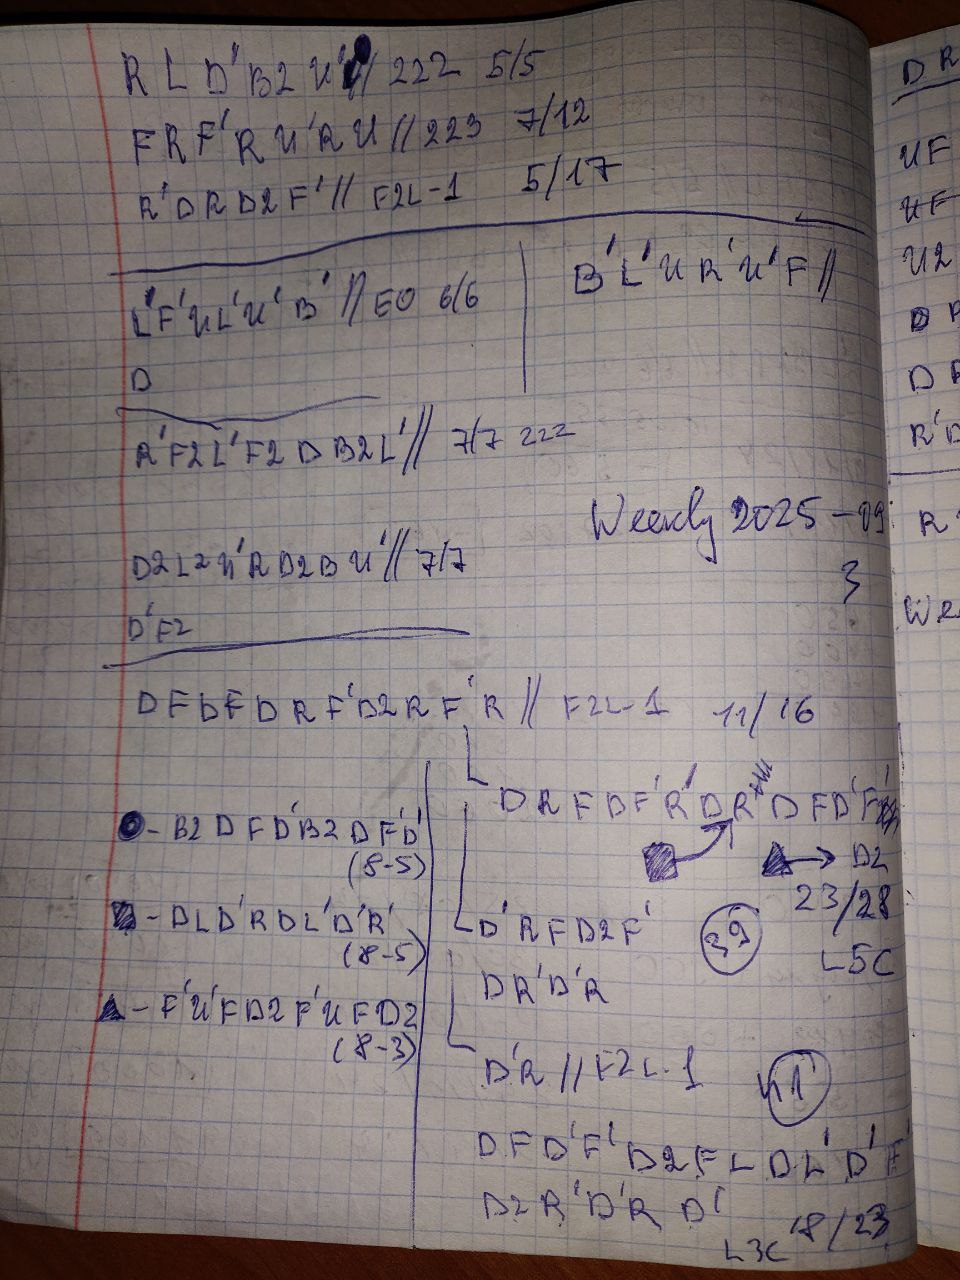 R L D' B2 U' // 222 5/5
F R F' R U' R U // 223 7/12
R' D R D2 F' // F2L-1 5/17
L' F' U L' U' B' // EO 6/6
D
B' L' U R' U' F //
R' F2 L' F2 D B2 L' // 7/7 222
Weekly 2025-09
3
D2 L2 U' R D2 B U' // 7/7
D' F2
D F D F D R F' D2 R F' R // F2L-1 11/16
D R F D F' R' D R D F D' F'
D2
23/28
L5C
- B2 D F D' B2 D F' D'
(8-5)
- D L D' R D L' D' R'
(8-5)
- F' U' F D2 F' U F D2
(8-3)
D' R F D2 F'
29
D R' D' R
D' R // F2L-1
D F D' F' D2 F L D L' D' F'
D2 R' D' R D'
L3C 18/23
D R
UF
UF
U2
D
D
R' D
R